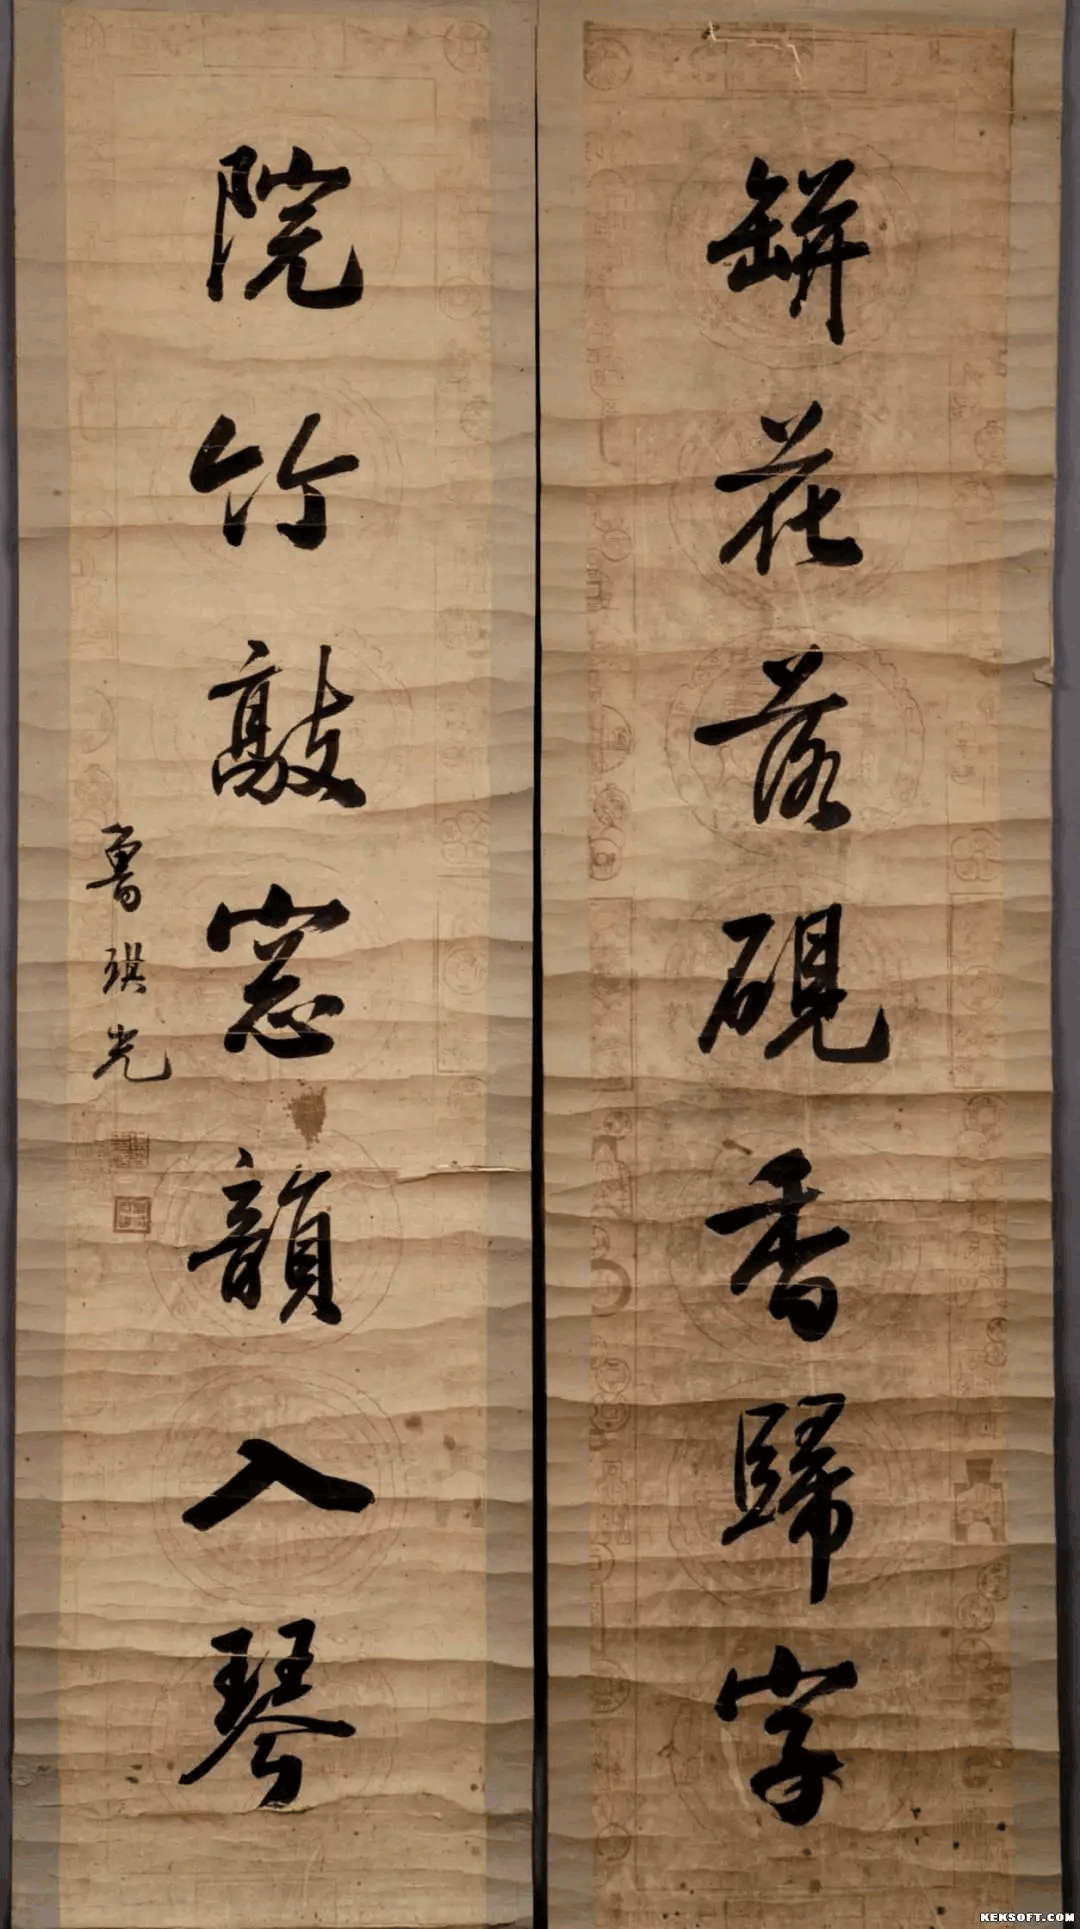 缾花落硯香歸字
院竹敲窓韻入琴
魯琪光
KEKSOFT.COM